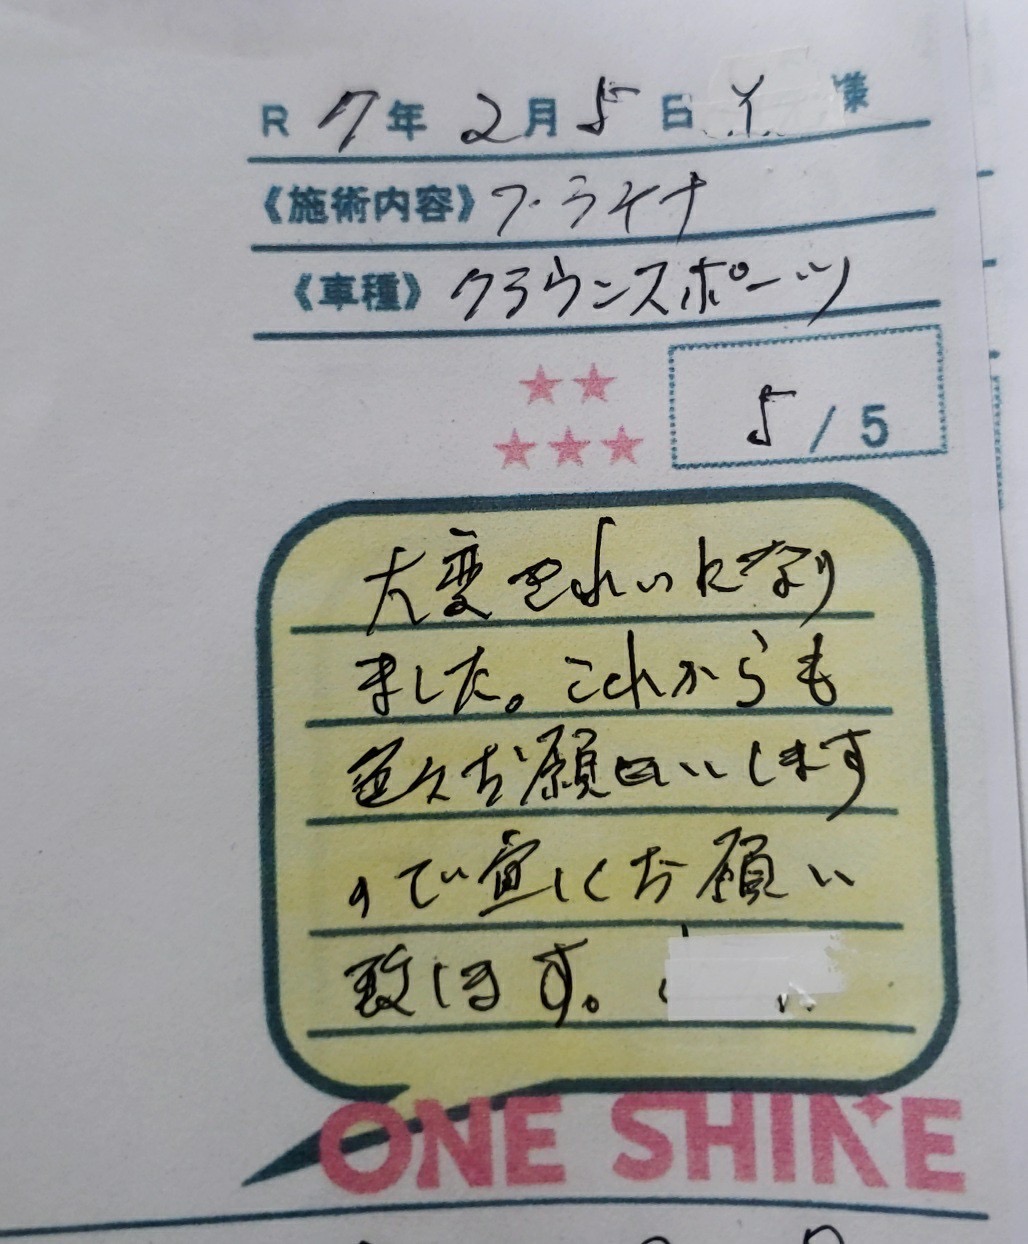 R 7年 2月 5日 様
《施術内容》プライナ
《車種》クラウンスポーツ
5/5
大変きれいになり
ました。これからも
色々お願いします
ので宜しくお願い
致します。
ONE SHINE